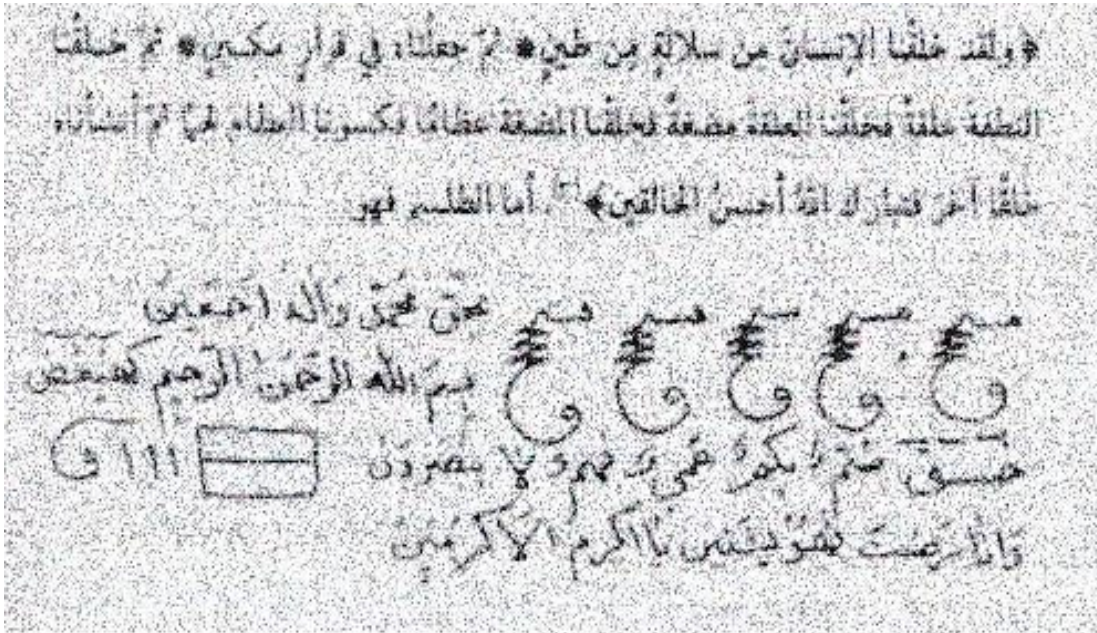 ﴿ولقد خلقنا الإنسانَ من سلالةٍ مِن طينٍ * ثمّ جعلناه في قرارٍ مكينٍ * ثمّ خلقنا
النطفةَ علقةً فخلقنا العلقةَ مضغةً فخلقنا المضغةَ عظامًا فكسونا العظام لحمًا ثمّ أنشأناه
خلقًا آخر فتبارك اللهُ أحسنُ الخالقين﴾ أما الطلسم فهو
بحق محمد وآله اجمعين
بسم الله الرحمن الرحيم كهيعص
حمسق صم بكم عمي فهم لا يبصرون
يا اكرم الاكرمين